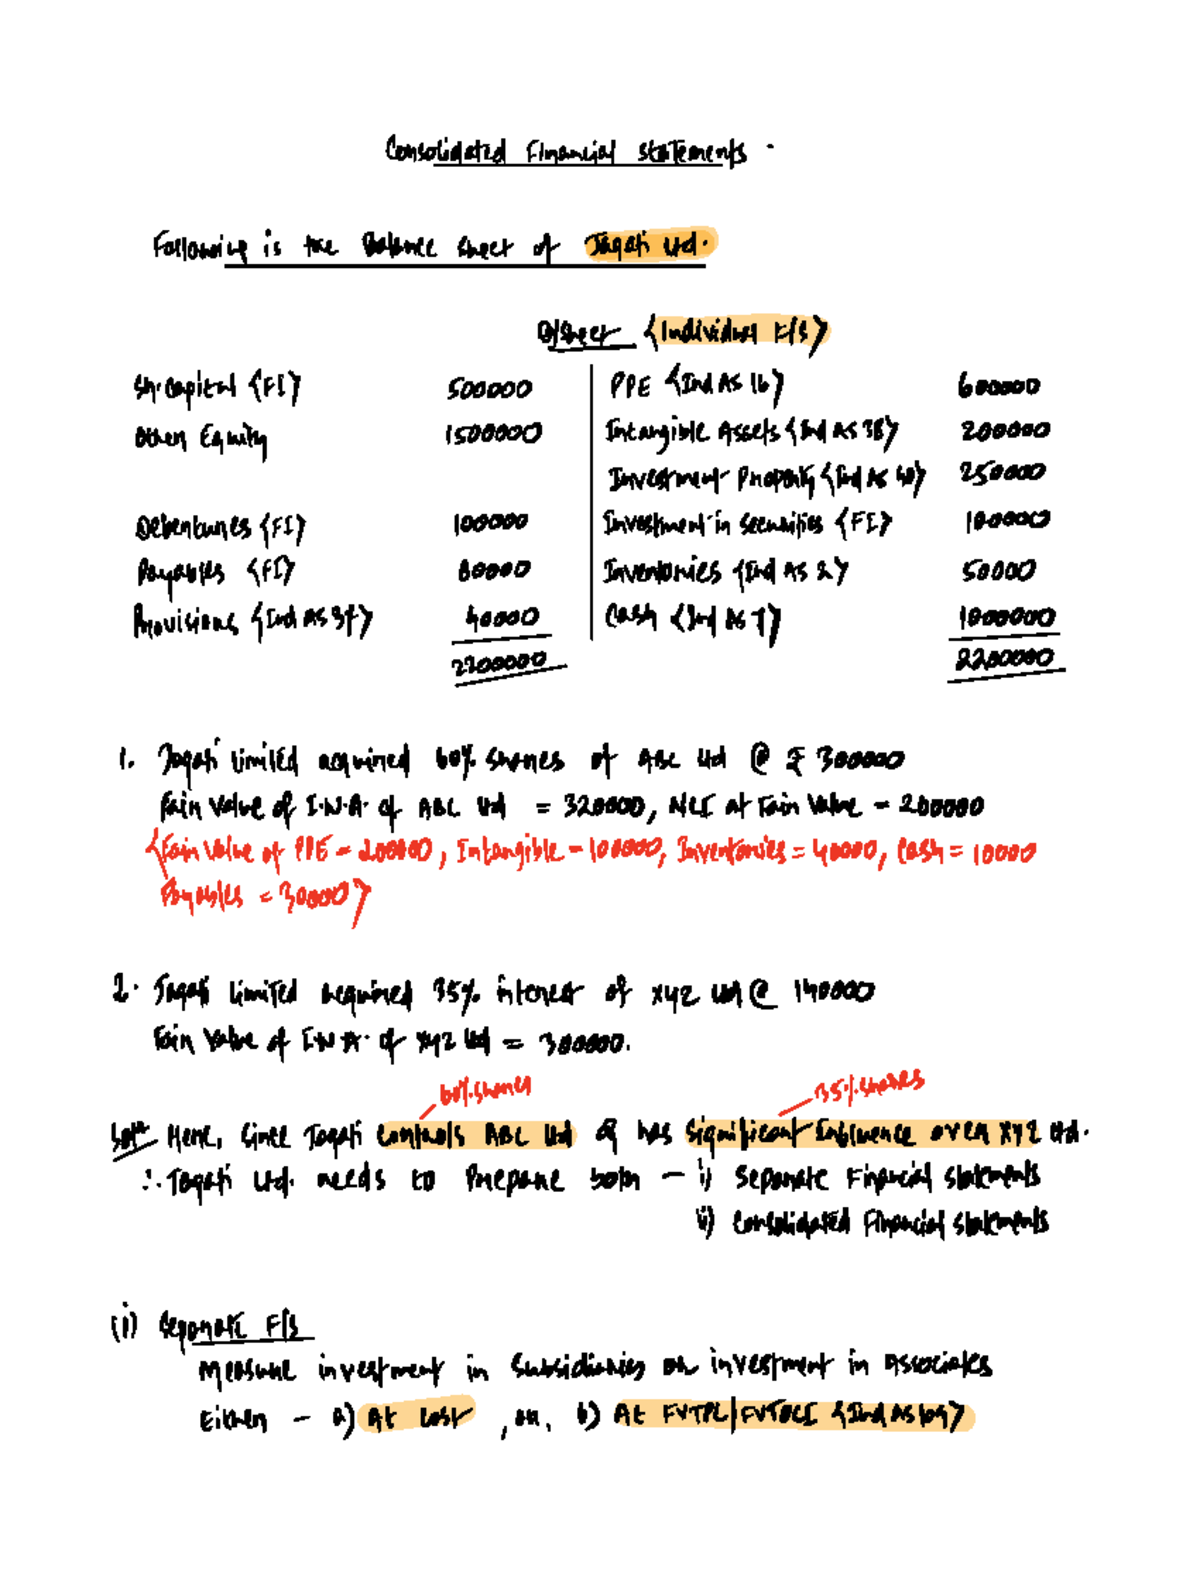 Consolidated Financial Statements.
Following is the Balance Sheet of Jagati Ltd.
B/Sheet {Individual F/S}
Sh. Capital {FI} 500000 PPE {Ind AS 16} 600000
Other Equity 1500000 Intangible Assets {Ind AS 38} 200000
Investment Property {Ind AS 40} 250000
Debentures {FI} 100000 Investment in Securities {FI} 100000
Payables {FI} 60000 Inventories {Ind AS 2} 50000
Provisions {Ind AS 37} 40000 Cash {Ind AS 7} 1000000
2200000 2200000
1. Jagati limited acquired 60% shares of ABC Ltd @ ₹ 300000
Fair Value of I.N.A. of ABC Ltd = 320000, NCI at Fair Value = 200000
{Fair Value of PPE = 200000, Intangible = 100000, Inventories = 40000, Cash = 10000
Payables = 30000}
2. Jagati limited acquired 35% interest of XYZ Ltd @ 140000
Fair Value of I.N.A. of XYZ Ltd = 300000.
60% shares 35% shares
Soln Here, Since Jagati Controls ABC Ltd & has Significant Influence over XYZ Ltd.
∴ Jagati Ltd. needs to Prepare both - i) Separate Financial Statements
ii) Consolidated Financial Statements
(i) Separate F/S
Measure investment in Subsidiaries or investment in Associates
Either - a) At Cost, or, b) At FVTPL/FVTOCI {Ind AS 109}